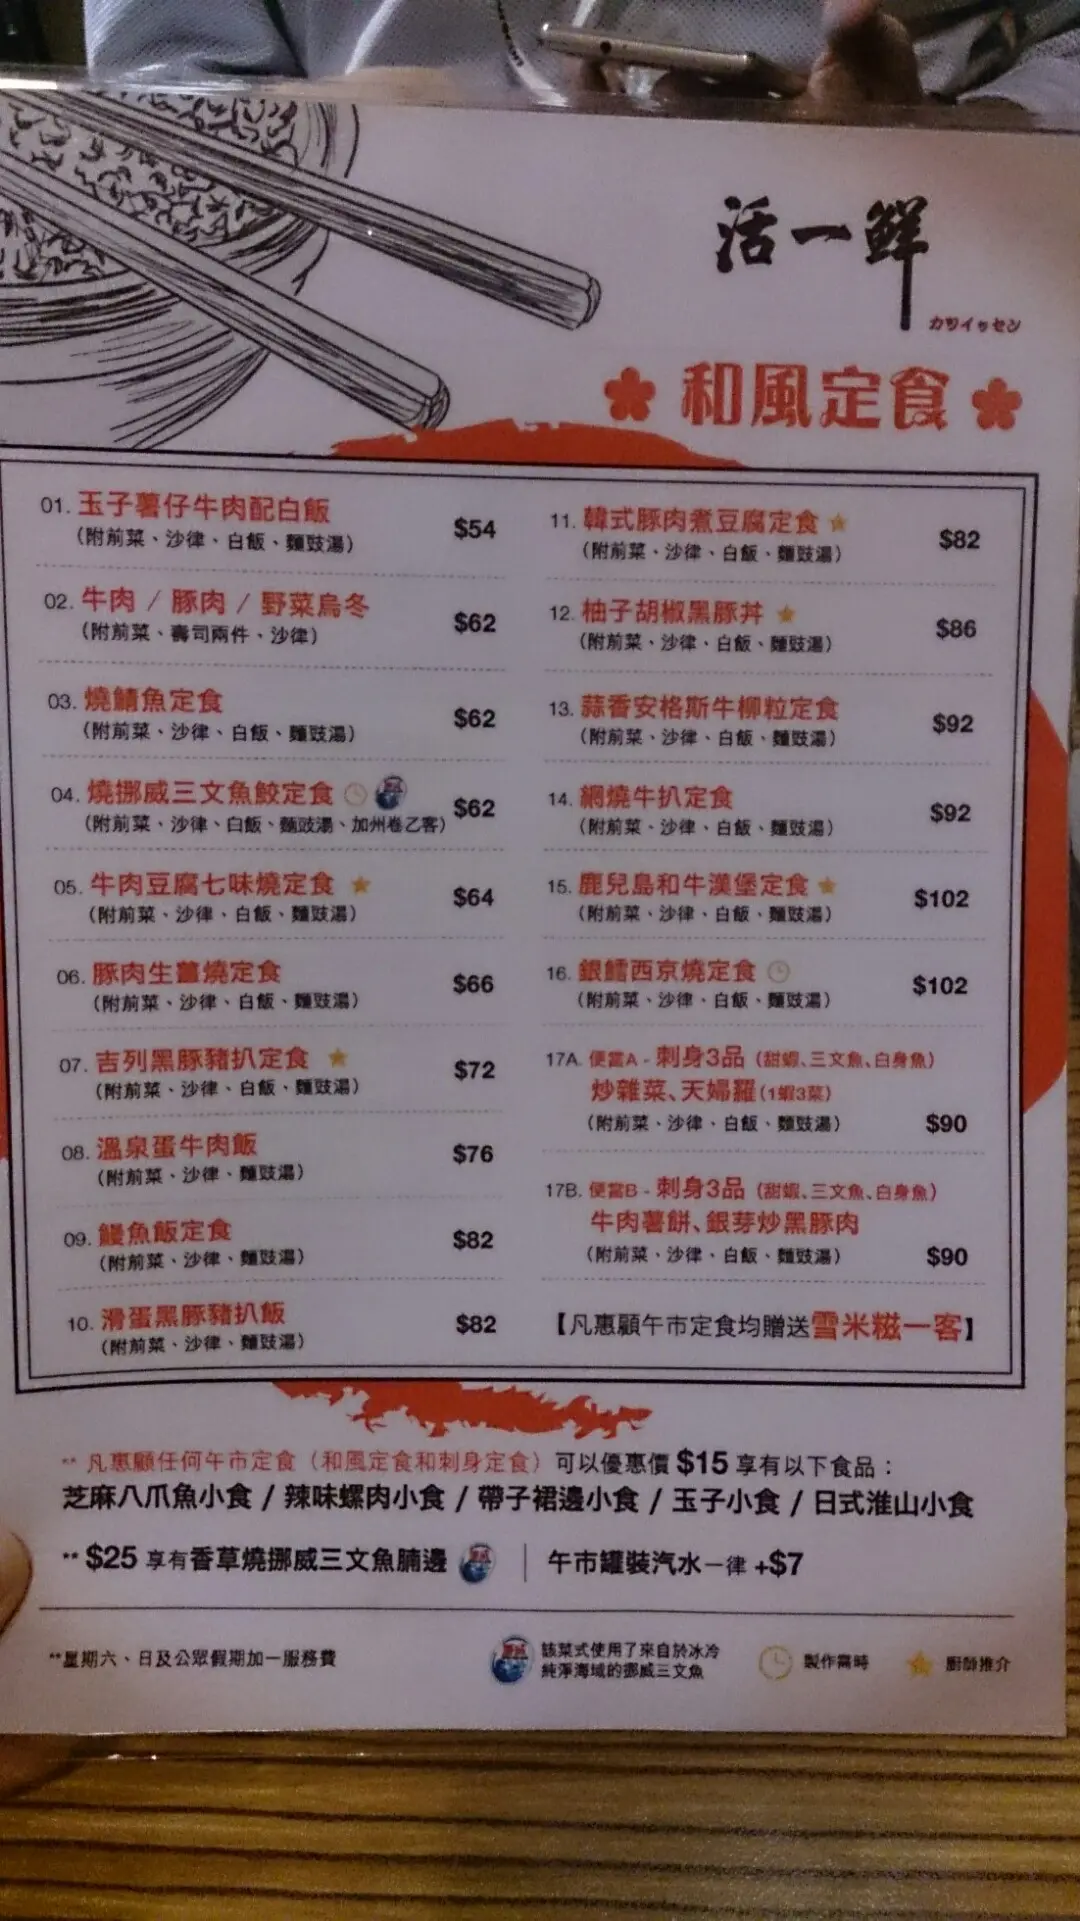 活一鮮
カツイッセン
和風定食
01. 玉子薯仔牛肉配白飯
(附前菜、沙律、白飯、麵豉湯)
$54
02. 牛肉 / 豚肉 / 野菜烏冬
(附前菜、壽司兩件、沙律)
$62
03. 燒鯖魚定食
(附前菜、沙律、白飯、麵豉湯)
$62
04. 燒挪威三文魚鮫定食
(附前菜、沙律、白飯、麵豉湯、加州卷乙客)
$62
05. 牛肉豆腐七味燒定食
(附前菜、沙律、白飯、麵豉湯)
$64
06. 豚肉生薑燒定食
(附前菜、沙律、白飯、麵豉湯)
$66
07. 吉列黑豚豬扒定食
(附前菜、沙律、白飯、麵豉湯)
$72
08. 溫泉蛋牛肉飯
(附前菜、沙律、麵豉湯)
$76
09. 鰻魚飯定食
(附前菜、沙律、麵豉湯)
$82
10. 滑蛋黑豚豬扒飯
(附前菜、沙律、麵豉湯)
$82
11. 韓式豚肉煮豆腐定食
(附前菜、沙律、白飯、麵豉湯)
$82
12. 柚子胡椒黑豚丼
(附前菜、沙律、白飯、麵豉湯)
$86
13. 蒜香安格斯牛柳粒定食
(附前菜、沙律、白飯、麵豉湯)
$92
14. 網燒牛扒定食
(附前菜、沙律、白飯、麵豉湯)
$92
15. 鹿兒島和牛漢堡定食
(附前菜、沙律、白飯、麵豉湯)
$102
16. 銀鱈西京燒定食
(附前菜、沙律、白飯、麵豉湯)
$102
17A. 便當A - 刺身3品 (甜蝦、三文魚、白身魚)
炒雜菜、天婦羅 (1蝦3菜)
(附前菜、沙律、白飯、麵豉湯)
$90
17B. 便當B - 刺身3品 (甜蝦、三文魚、白身魚)
牛肉薯餅、銀芽炒黑豚肉
(附前菜、沙律、白飯、麵豉湯)
$90
【凡惠顧午市定食均贈送雪米糍一客】
** 凡惠顧任何午市定食 (和風定食和刺身定食) 可以優惠價 $15 享有以下食品：
芝麻八爪魚小食 / 辣味螺肉小食 / 帶子裙邊小食 / 玉子小食 / 日式淮山小食
** $25 享有香草燒挪威三文魚腩邊 | 午市罐裝汽水一律 +$7
**星期六、日及公眾假期加一服務費
該菜式使用了來自於冰冷
純淨海域的挪威三文魚
製作需時
廚師推介